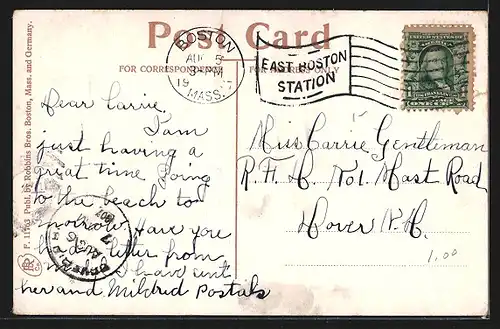 Post Card
FOR CORRESPONDENCE
FOR ADDRESS ONLY
BOSTON
AUG 5
3-PM
MASS.
EAST BOSTON
STATION
ONE CENT
F. 11753 Publ. by Robbins Bros. Boston, Mass. and Germany.
Dear Carrie,
I am
just having a
great time. Going
to the beach to
morrow. Have you
had a letter from
I have sent
her and Mildred Postals
Miss Carrie Gentleman
R. F. D. No 1. Mast Road
Dover N. H.
1.00